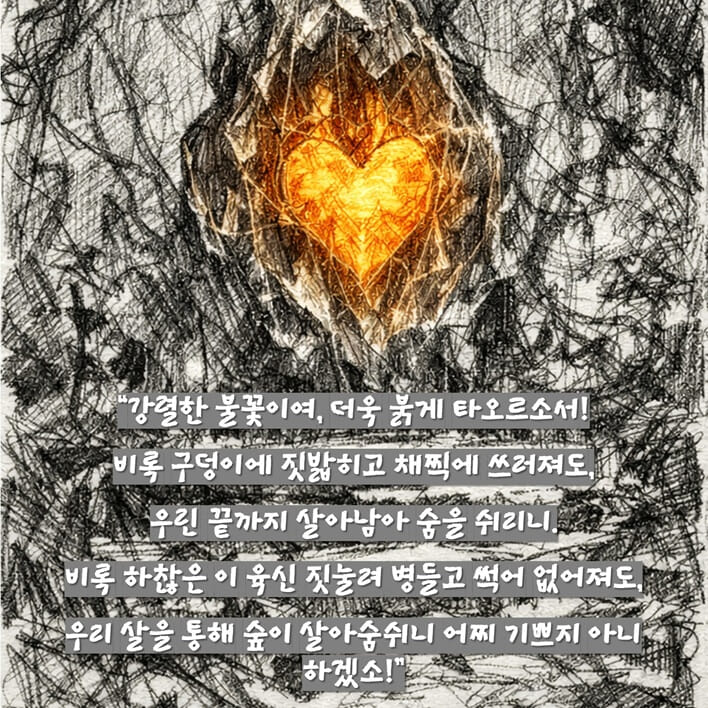 “강렬한 불꽃이여, 더욱 붉게 타오르소서!
비록 구덩이에 짓밟히고 채찍에 쓰러져도,
우린 끝까지 살아남아 숨을 쉬리니.
비록 하찮은 이 육신 짓눌려 병들고 썩어 없어져도,
우리 살을 통해 숲이 살아숨쉬니 어찌 기쁘지 아니
하겠소!”